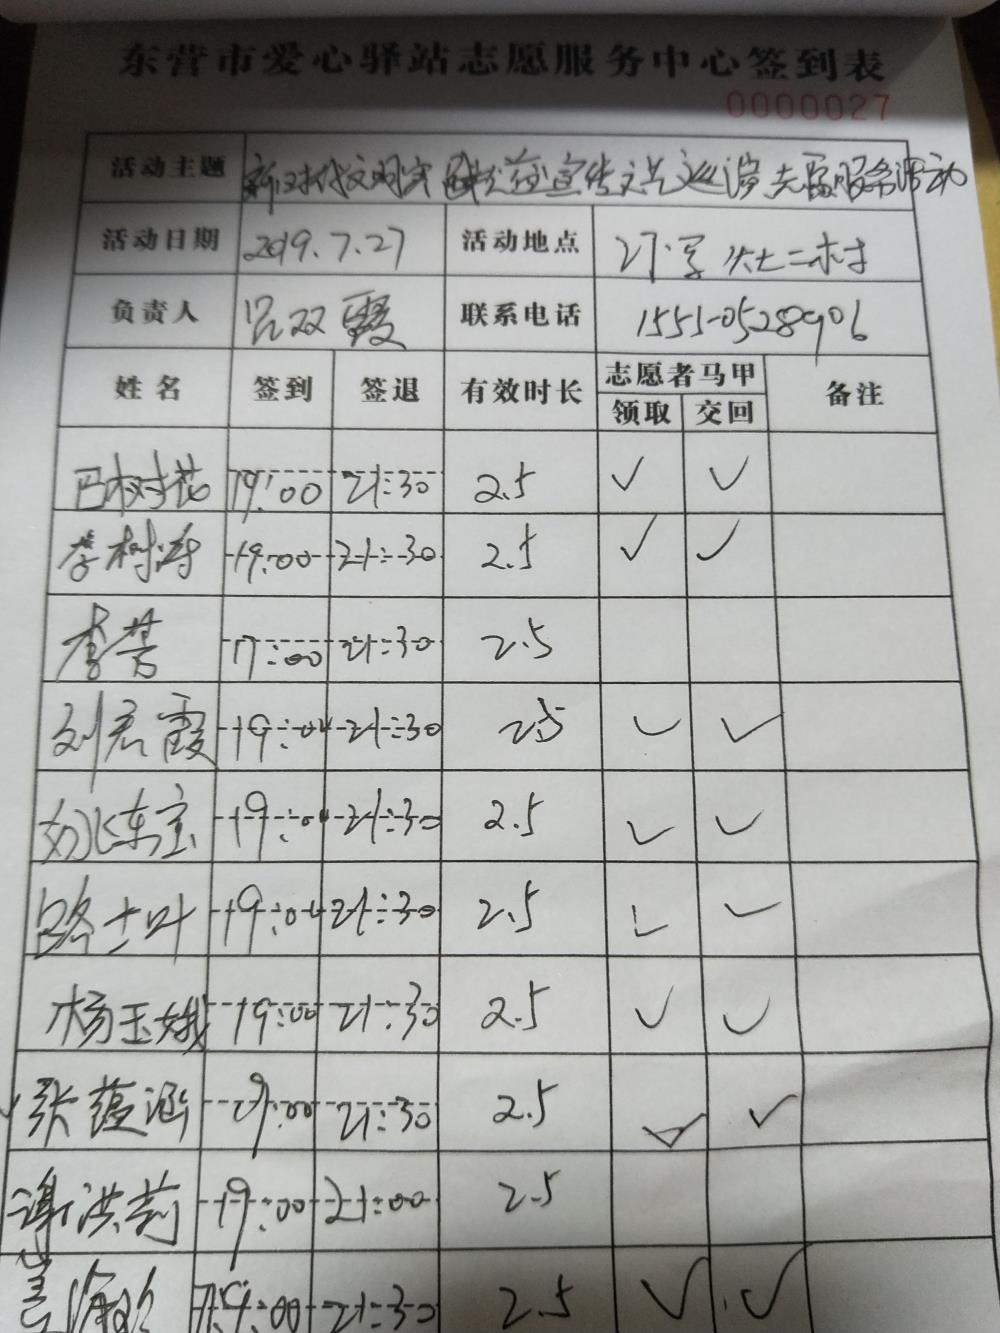 东营市爱心驿站志愿服务中心签到表
0000027
活动主题 新时代文明实践公益宣传文艺巡演志愿服务活动
活动日期 2019.7.27 活动地点 灶二村
负责人 吕双霞 联系电话 15510528906
姓名 签到 签退 有效时长 志愿者马甲 备注
领取 交回
巴树花 19:00 21:30 2.5 ✓ ✓
李树海 19:00 21:30 2.5 ✓ ✓
李芳 17:00 21:30 2.5
刘君霞 19:04 21:30 2.5 ✓ ✓
姚东宝 19:04 21:30 2.5 ✓ ✓
路士叶 19:04 21:30 2.5 ✓ ✓
杨玉娥 19:00 21:30 2.5 ✓ ✓
张蕴涵 19:00 21:30 2.5 ✓ ✓
谢洪莉 19:00 21:00 2.5
19:00 21:30 2.5 ✓ ✓